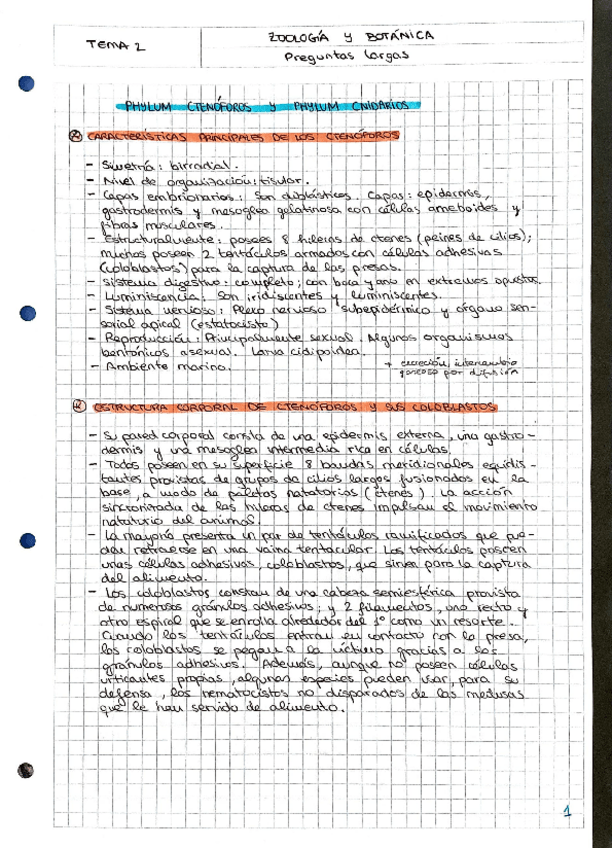 TEMA 2
ZOOLOGÍA y BOTÁNICA
Preguntas largas
PHYLUM CTENÓFOROS Y PHYLUM CNIDARIOS
CARACTERÍSTICAS PRINCIPALES DE LOS CTENÓFOROS
- Simetría: birradial.
- Nivel de organización: tisular.
- Capas embrionarias: Son diblásticos. Capas: epidermis,
gastrodermis y mesoglea gelatinosa con células ameboides y
fibras musculares.
- Estructuralmente: posees 8 hileras de ctenes (peines de cilios);
muchos poseen 2 tentáculos armados con células adhesivas
(coloblastos) para la captura de las presas.
- Sistema digestivo: completo; con boca y ano en extremos opuestos.
- Luminiscencia: Son iridiscentes y luminiscentes.
- Sistema nervioso: Plexo nervioso subepidérmico y órgano sen-
sorial apical (estatocisto)
- Reproducción: Principalmente sexual. Algunos organismos
bentónicos asexual. Larva cidipoidea.
- Ambiente marino.
+ excreción, intercambio
gaseoso por difusión
ESTRUCTURA CORPORAL DE CTENÓFOROS Y SUS COLOBLASTOS
- Su pared corporal consta de una epidermis externa, una gastro-
dermis y una mesoglea intermedia rica en células.
- Todos poseen en su superficie 8 bandas meridionales equidis-
tantes provistas de grupos de cilios largos fusionados en la
base, a modo de paletas natatorias (ctenes). La acción
sincronizada de las hileras de ctenes impulsan el movimiento
natatorio del animal.
- La mayoría presenta un par de tentáculos ramificados que pue-
den retraerse en una vaina tentacular. Los tentáculos poseen
unas células adhesivas, coloblastos, que sirven para la captura
del alimento.
- Los coloblastos constan de una cabeza semiesférica provista
de numerosos gránulos adhesivos; y 2 filamentos, uno recto y
otro espiral que se enrolla alrededor del 1º como un resorte.
Cuando los tentáculos entran en contacto con la presa,
los coloblastos se pegan a la víctima gracias a los
gránulos adhesivos. Además, aunque no poseen células
urticantes propias, algunas especies pueden usar, para su
defensa, los nematocistos no disparados de las medusas
que le han servido de alimento.
1